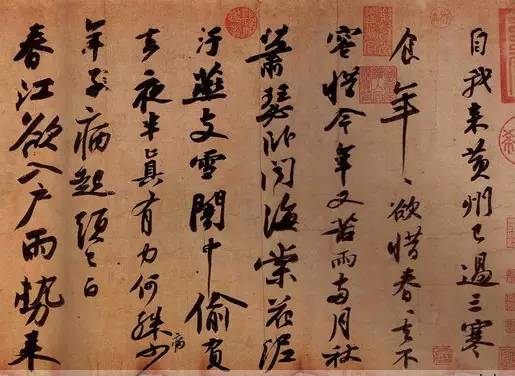 自我来黄州已過三寒
食年〻欲惜春〻去不
容惜今年又苦雨兩月秋
蕭瑟卧聞海棠花泥
汙燕支雪闇中偷負
去夜半真有力何殊少
年子病起頭已白
春江欲入戶雨勢来
病